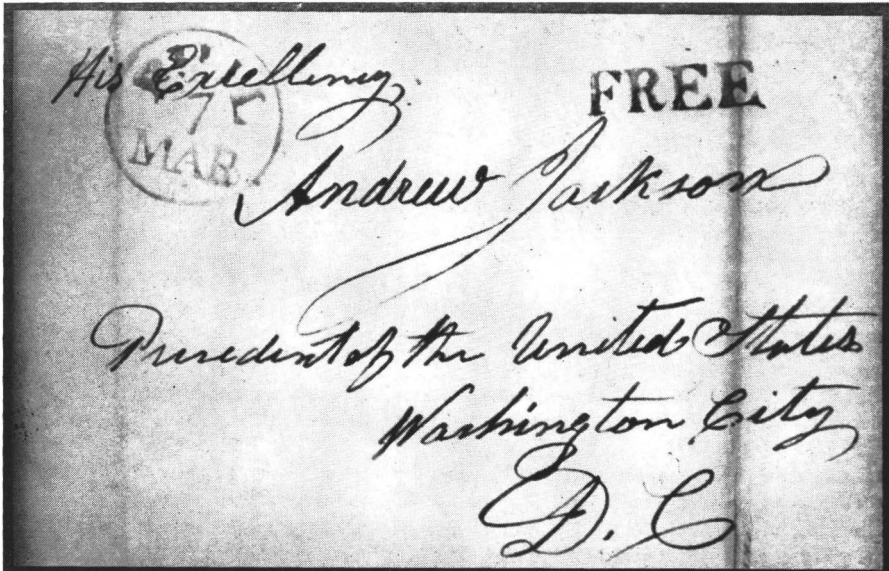 His Excellency
7
MAR
FREE
Andrew Jackson
President of the United States
Washington City
D. C